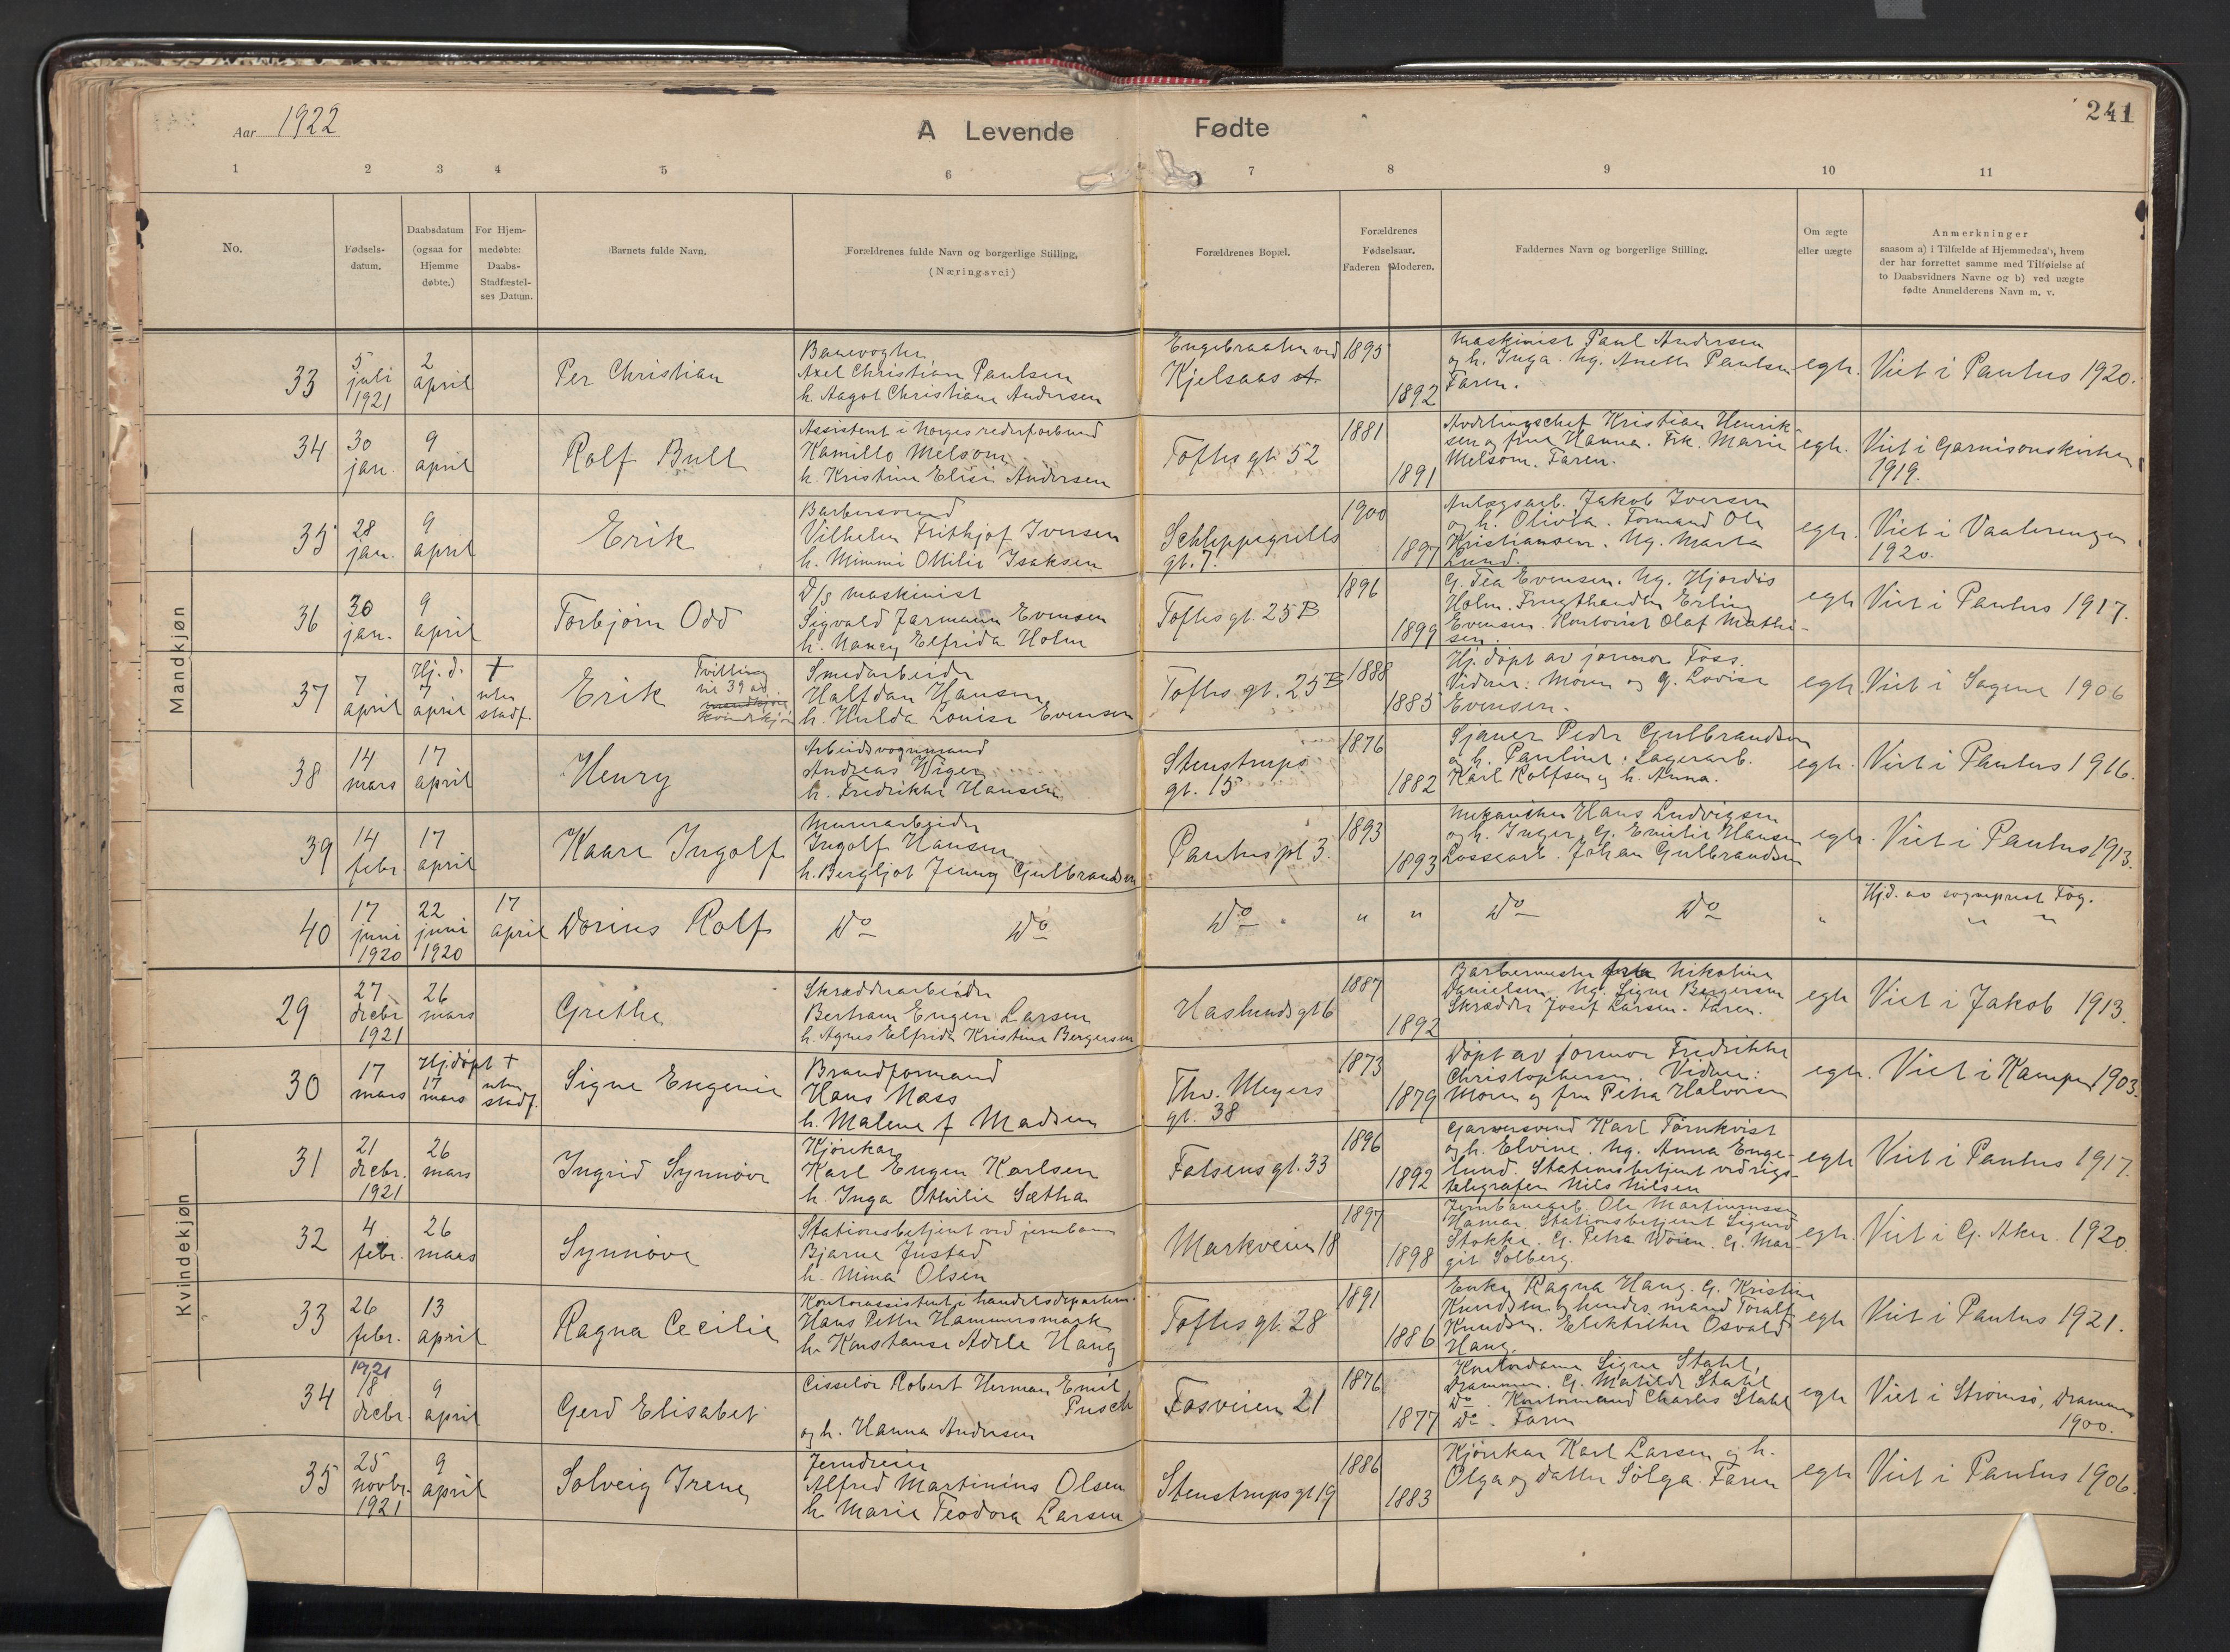 241
Aar 1922
A Levende Fødte
1 2 3 4 5 6 7 8 9 10 11
No.
Fødsels-
datum.
Daabsdatum
(ogsaa for
Hjemme
døbte.)
For Hjem-
medøbte:
Daabs-
Stadfæstel-
ses Datum.
Barnets fulde Navn.
Forældrenes fulde Navn og borgerlige Stilling.
(Næringsvei)
Forældrenes Bopæl.
Forældrenes
Fødselsaar.
Faderen Moderen.
Faddernes Navn og borgerlige Stilling.
Om ægte
eller uægte
Anmerkninger
saasom a) i Tilfælde af Hjemmedaab, hvem
der har forrettet samme med Tilføielse af
to Daabsvidners Navne og b) ved uægte
fødte Anmelderens Navn m. v.
Mandkjøn
33
5
juli
1921
2
april
Per Christian
Banevogter
Axel Christian Paulsen
h. Aagot Christiane Andersen
Engebraaten ved
Kjelsaas st.
1895
1892
Maskinist Paul Andersen
og h. Inga. Ug. Anette Paulsen
Faren.
egte.
Viet i Paulus 1920.
34
30
jan.
9
april
Rolf Bull
Assistent i Norges rederforbund
Kamillo Melsom
h. Kristine Elise Andersen
Toftes gt. 52
1881
1891
Avdelingschef Kristian Henrik-
sen og frue Hanna. Frk. Marie
Melsom. Faren.
egte.
Viet i Garnisonskirken
1919.
35
28
jan.
9
april
Erik
Barbersvend
Vilhelm Frithjof Iversen
h. Mimmi Ottilie Isaksen
Schleppegrells
gt. 7.
1900
1897
Anlægsarb. Jakob Iversen
og h. Olivia. Formand Ole
Kristiansen. Ug. Marta
Lund.
egte.
Viet i Vaalerengen
1920.
36
30
jan.
9
april
Torbjørn Odd
D/s maskinist
Sigvald Jarmann Evensen
h. Nancy Elfrida Holm
Toftes gt. 25 B
1896
1899
G. Tea Evensen. Ug. Hjørdis
Holm. Frugthandler Erling
Evensen. Kontorist Olaf Mathi-
sen.
egte
Viet i Paulus 1917.
37
7
april
Hj. d.
7
april
†
uten
stadf.
Erik
Tvilling
til 39 av
mandkjøn
Kvindekjøn
Smedarbeider
Halfdan Hansen
h. Hulda Louise Evensen
Toftes gt. 25 B
1888
1885
Hj. døpt av jormor Foss.
Vidner: Moren og g. Lovise
Evensen.
egte
Viet i Sagene 1906
38
14
mars
17
april
Henry
Arbeidsvognmand
Andreas Wiger
h. Fredrikke Hansen
Stenstrups
gt. 15
1876
1882
Sjauer Peder Gulbrandsen
og h. Pauline. Lagerarb.
Karl Rolfsen og h. Anna.
egte.
Viet i Paulus 1916.
39
14
febr.
17
april
Kaare Ingolf
Murerarbeider
Ingolf Hansen
h. Bergljot Jenny Gulbrandsen
Paulus pl 3.
1893
1893
Mekaniker Hans Ludvigsen
og h. Inger. G. Emilie Hansen
Lossearb. Johan Gulbrandsen
egte.
Viet i Paulus 1913.
40
17
juni
1920
22
juni
1920
17
april
Dorius Rolf
Do Do
Do
" "
Do Do
"
Hjd. av sogneprest Fog.
" "
Kvindekjøn
29
27
decbr
1921
26
mars
Grethe
Skrædderarbeider
Bertram Eugen Larsen
h. Agnes Elfrida Kristine Bergersen
Haslunds gt 6
1887
1892
Barbermester Nikoline
Danielsen. Ug. Signe Bergersen
Skrædder Josef Larsen. Faren.
egte
Viet i Jakob 1913.
30
17
mars
Hj. døpt
17
mars
†
uten
stadf.
Signe Eugenie
Brandformand
Hans Næss
h. Malene f Madsen
Thv. Meyers
gt. 38
1873
1879
Døpt av jormor Fredrikke
Christophersen. Vidner:
Moren og fru Petra Halvorsen
egte.
Viet i Kampen 1903.
31
21
decbr.
1921
26
mars
Ingrid Synnøve
Kjørekar
Karl Eugen Karlsen
h. Inga Othilie Sætha
Falsens gt. 33
1896
1892
Garversvend Karl Törnkvist
og h. Elvine. Ug. Anna Enge-
lund. Stationsbetjent ved rigs-
telegrafen Nils Nilsen
egte
Viet i Paulus 1917.
32
4
febr.
26
mars
Synnøve
Stationsbetjent ved jernbanen
Bjarne Justad
h. Nina Olsen
Markveien 18
1897
1898
Jernbanearb. Ole Martinussen
Hamar. Stationsbetjent Sigurd
Stokke. G. Petra Woien. G. Mar-
git Solberg.
egte.
Viet i G. Aker. 1920.
33
26
febr.
13
april
Ragna Cecilie
Kontorassistent i handelsdepartem.
Hans Petter Hammersmark
h. Konstanse Adele Haug
Toftes gt. 28
1891
1886
Enke Ragna Haug. G. Kristine
Knudsen og hendes mand Toralf
Knudsen. Elektriker Osvald
Haug.
egte
Viet i Paulus 1921.
34
1921
18
decbr.
9
april
Gerd Elisabet
Cisselør Robert Herman Emil
Pusch
og h. Hanna Andersen
Fosveien 21
1876
1877
Kontordame Signe Stahl,
Drammen. G. Matilde Stahl
Do. Kontormand Charles Stahl
Do. Faren
egte
Viet i Strømsø, Drammen
1900.
35
25
novbr.
1921
9
april
Solveig Irene
Jerndreier
Alfred Martinius Olsen
h. Marie Teodora Larsen
Stenstrups gt 19
1886
1883
Kjørekar Karl Larsen og h.
Olga og datter Solga. Faren
egte
Viet i Paulus 1906.